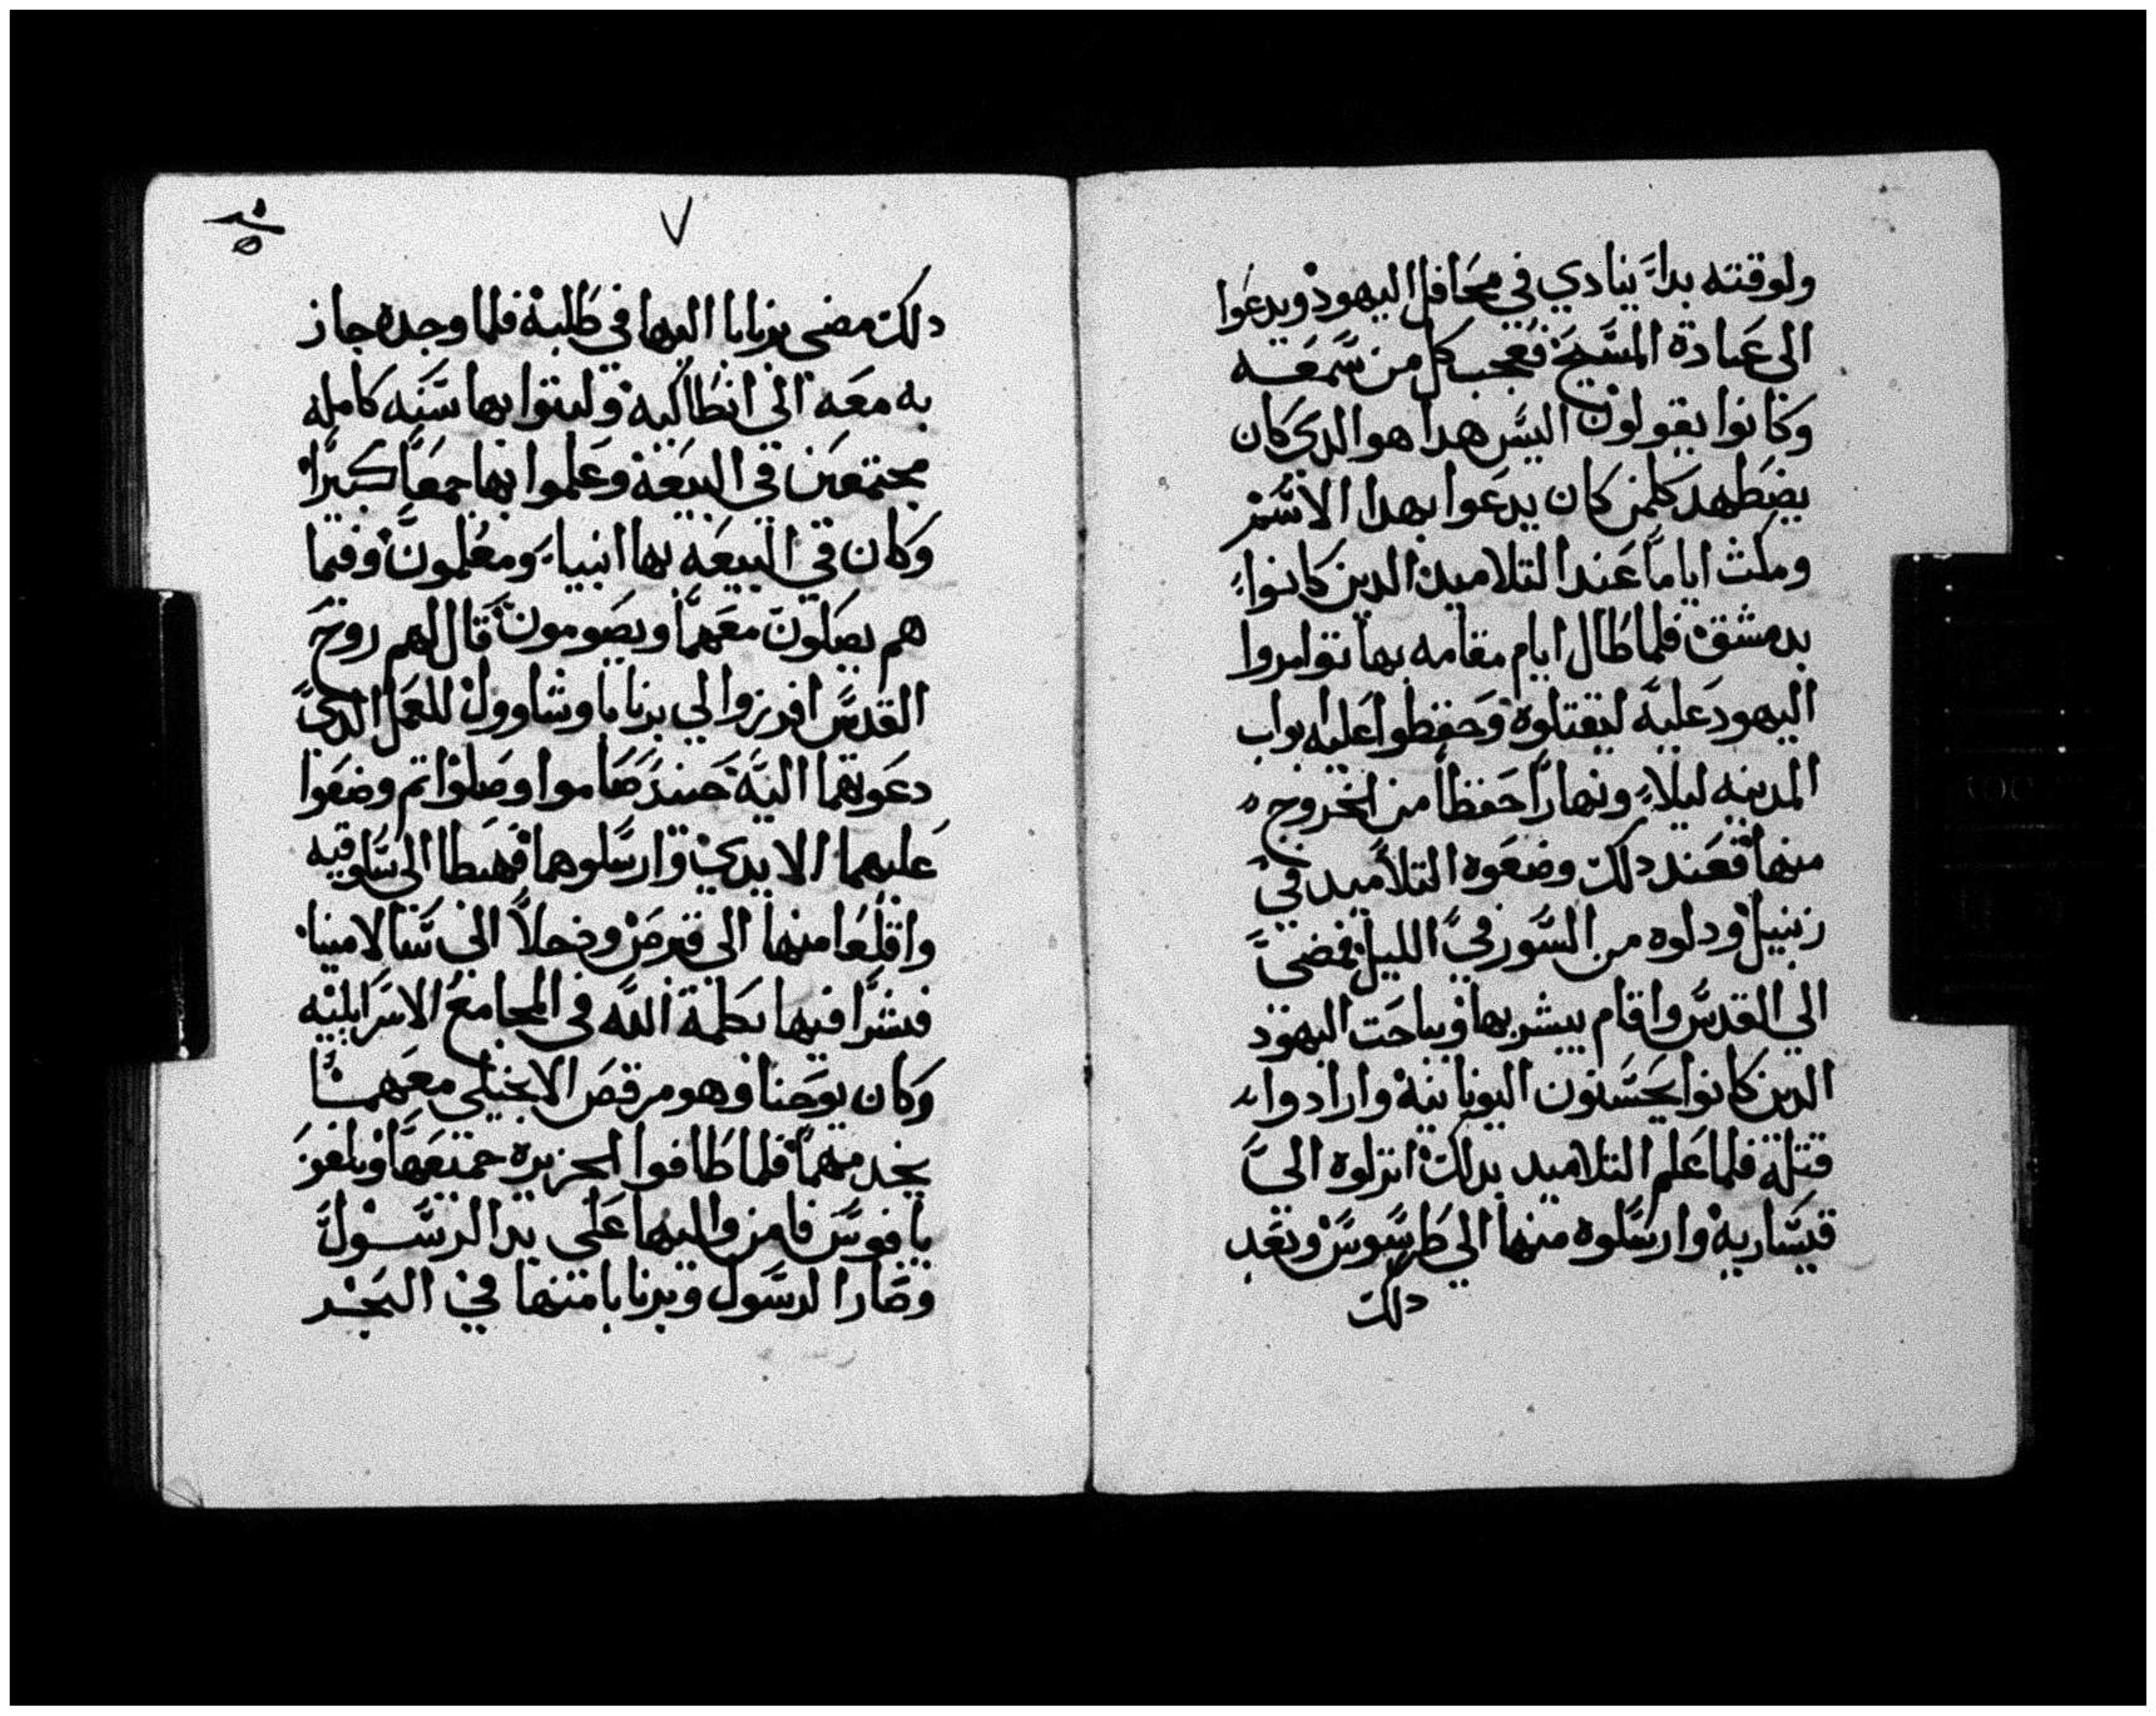 ولوقته بدا ينادي في محافل اليهود ويدعوا
الى عبادة المسيح فعجب كل من سمعه
وكانوا يقولون اليس هدا هو الدى كان
يضطهد كلمن كان يدعوا بهدا الاسم
ومكث اياما عند التلاميد الدين كانوا
بدمشق فلما طال ايام مقامه بها توامروا
اليهود عليه ليقتلوه وحفظوا عليه بواب
المدينه ليلا ونهارا حفظا من الخروج
منها فعند دلك وضعوه التلاميد في
زنبيل ودلوه من السور في الليل فمضى
الي القدس واقام يبشر بها ويباحت اليهود
الدين كانوا يحسنون اليونانية وارادوا
قتله فلما علم التلاميد بدلك انزلوه الى
قيساريه وارسلوه منها الي طرسوس وبعد
دلك
٧
دلك مضى برنابا اليها في طلبه فلما وجده جاز
به معه الى انطاكيه ولبتوا بها سنه كامله
مجتمعين في البيعة وعلموا بها جمعا كبيرا
وكان في البيعه بها انبياء ومعلمون وفيما
هم يصلون معهما ويصومون قال لهم روح
القدس افرزوا لي برنابا وشاوول للعمل الدى
دعوتهما اليه حينيد صاموا وصلوا تم وضعوا
عليهما الايدي وارسلوهما فهبطا الى سلوقيه
واقلعا منها الي قبرص ودخلا الى سالامينا
فبشرا فيها بكلمة الله في المجامع الاسرايليه
وكان يوحنا وهو مرقص الانجيلي معهما
يخدمهما فلما طافوا الجزيره جميعها وبلغو
بافوس فامن واليها على يد الرسول
وصارا الرسول وبرنابا منها في البحر